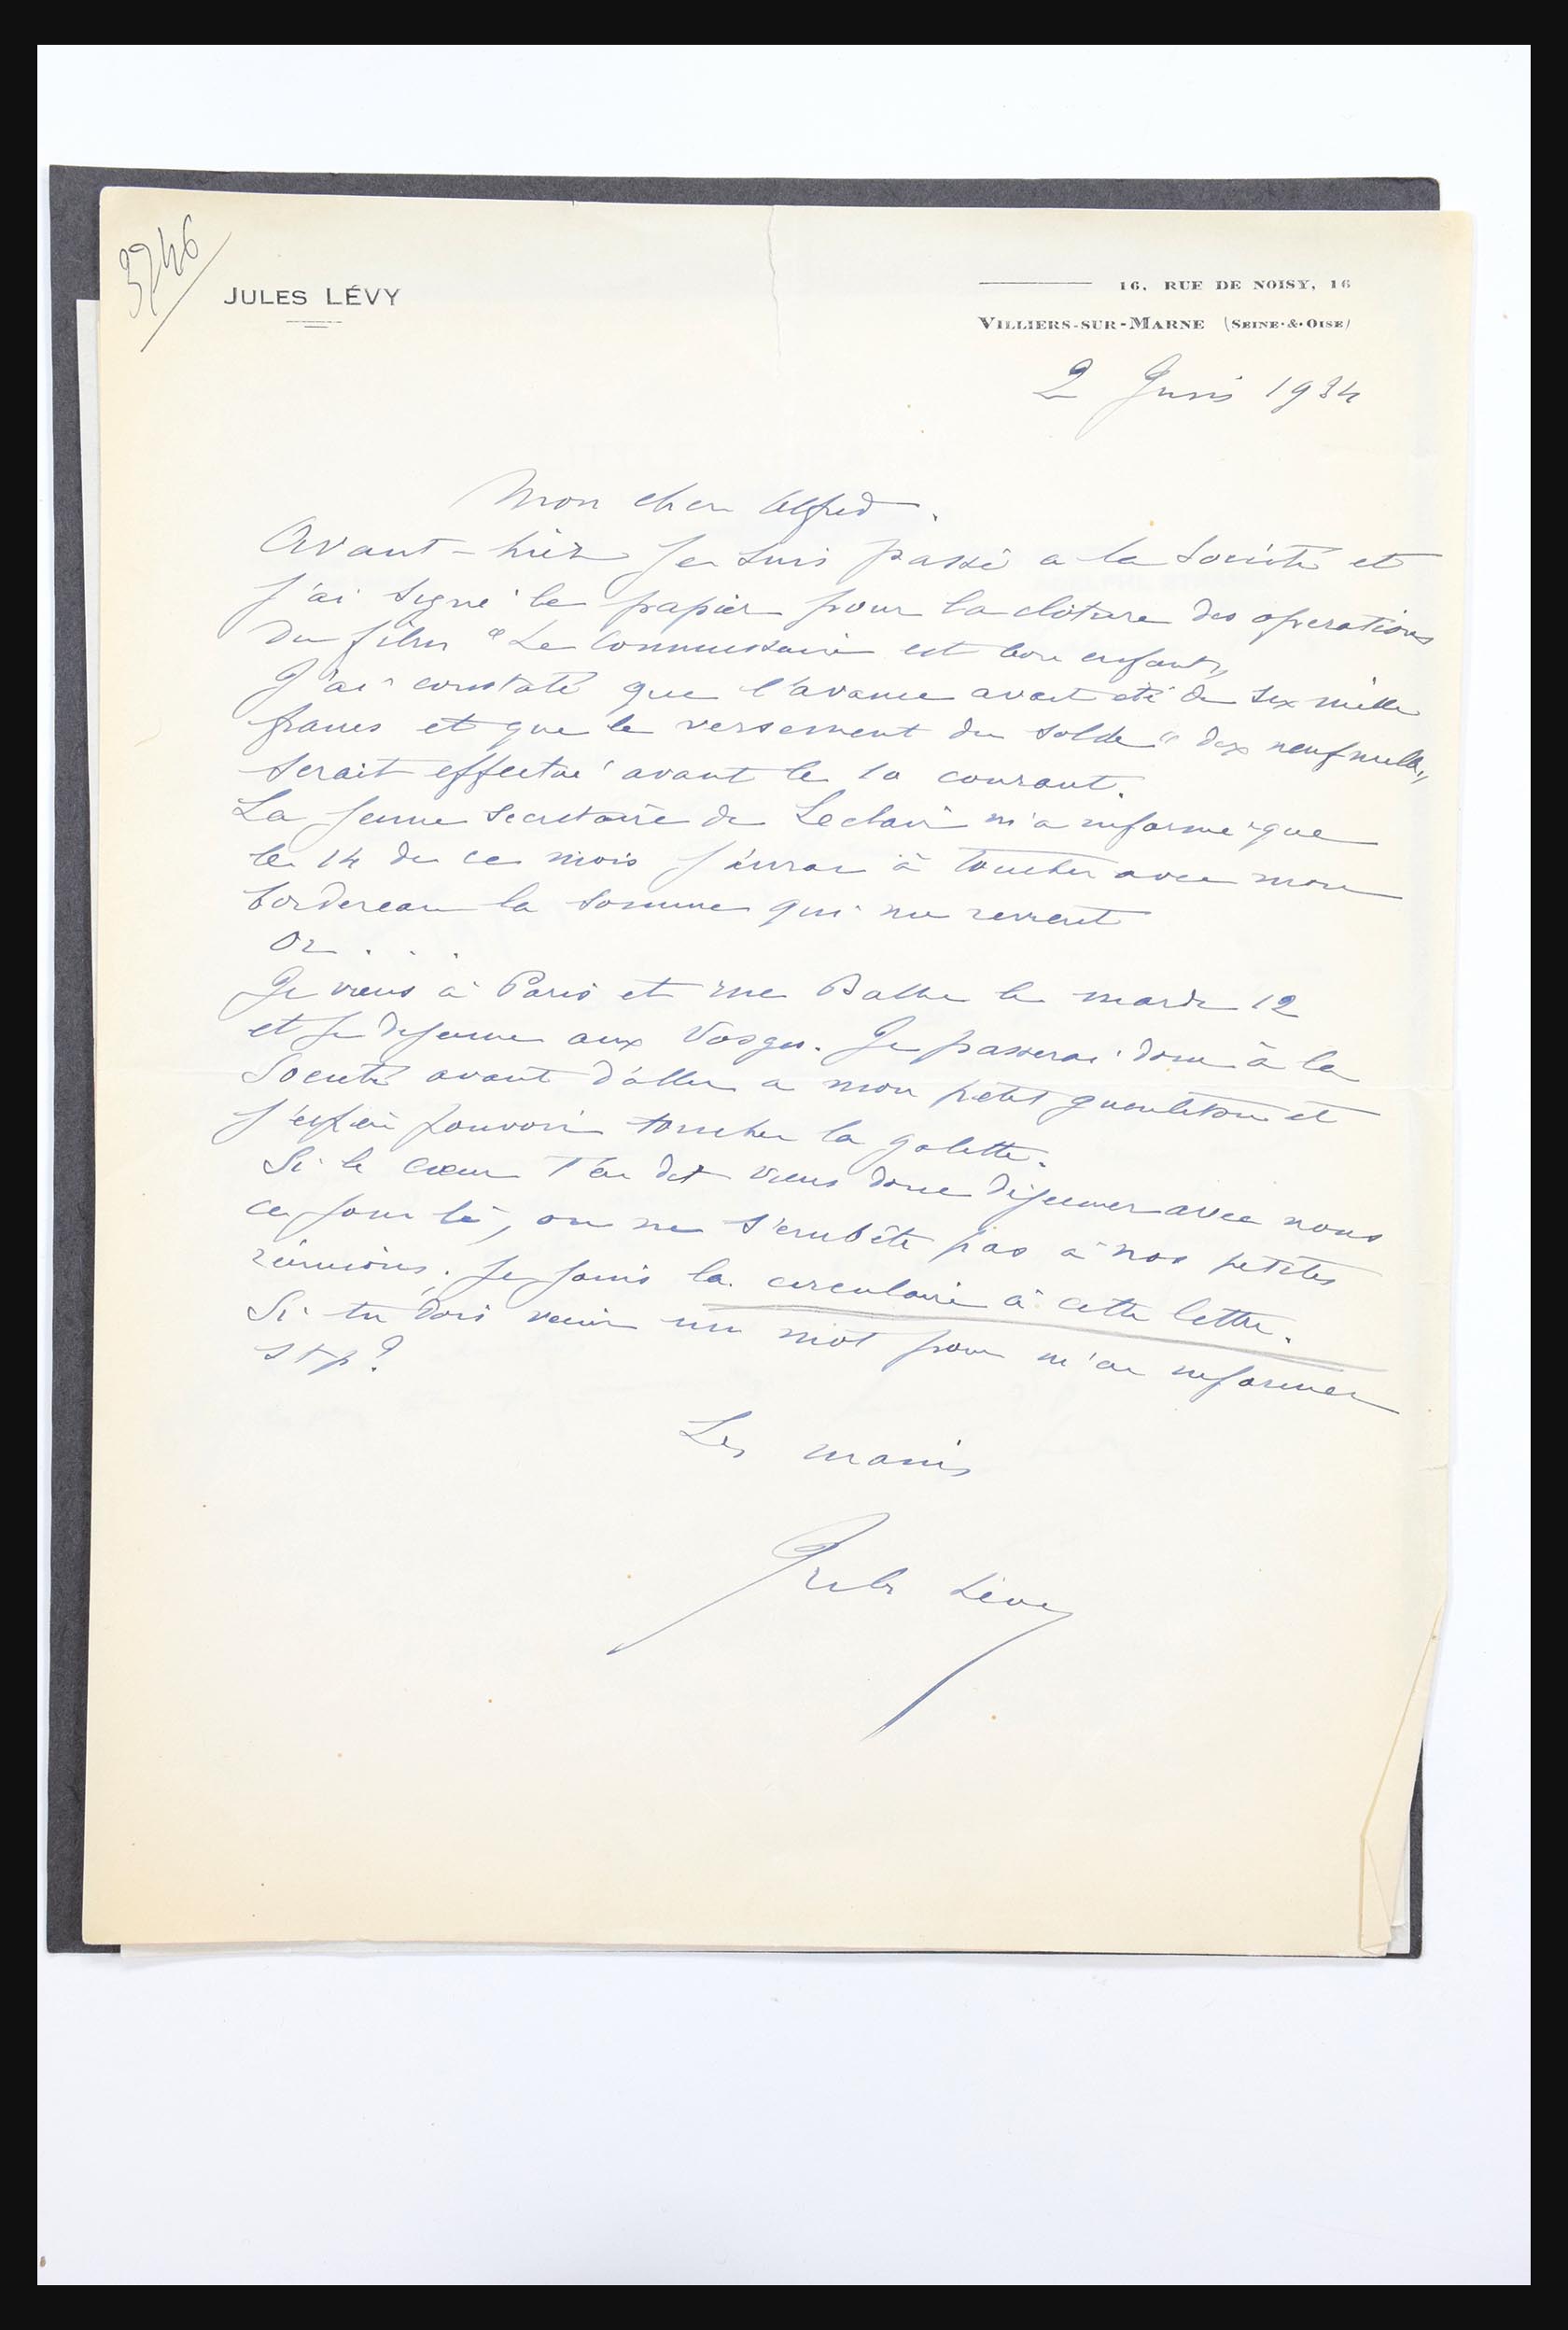 3746
JULES LÉVY
16, RUE DE NOISY, 16
VILLIERS-SUR-MARNE (SEINE-&-OISE)
2 Juin 1934
Mon cher Alfred.
Avant-hier je suis passé a la Société et
j'ai signé le papier pour la cloture des operations
du film "Le Commissaire est bon enfant"
J'ai constaté que l'avance avait été de six mille
francs et que le versement du solde "dix neuf mille"
serait effectué avant le 10 courant.
La jeune secretaire de Leclair m'a informé que
le 14 de ce mois j'aurai à toucher avec mon
bordereau la somme qui me revient
Or . . . .
Je viens à Paris et rue Ballu le mardi 12
et je dejeune aux Vosges. Je passerai donc à la
Société avant d'aller a mon petit gueuleton et
j'espère pouvoir toucher la galette.
Si le cœur t'en dit viens donc déjeuner avec nous
ce jour là, on ne s'embête pas à nos petites
réunions. Je joins la circulaire à cette lettre.
Si tu dois venir un mot pour m'en informer
stp?
Les mains
Jules Lévy